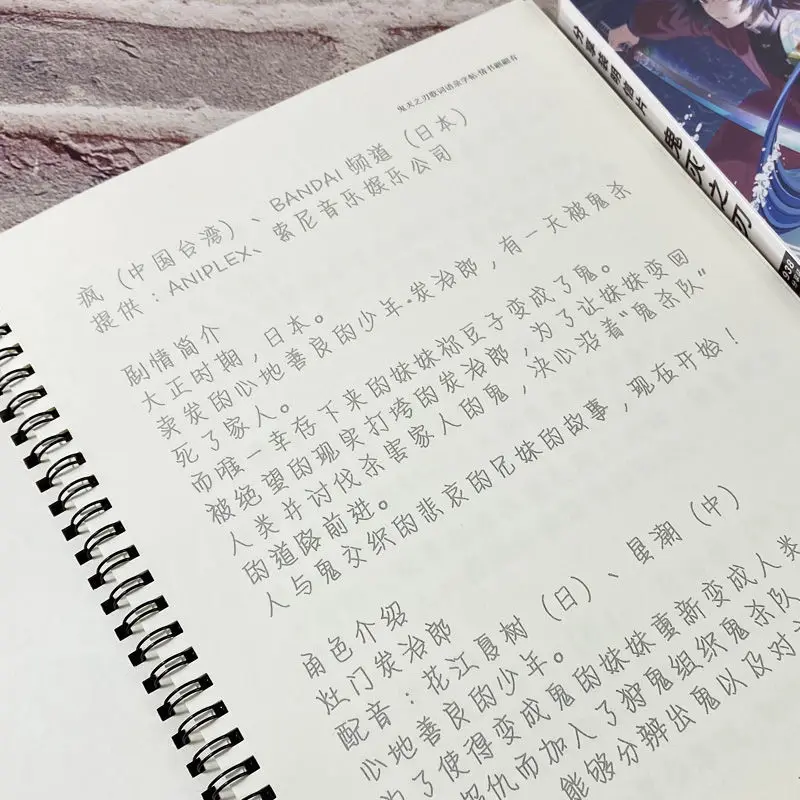 鬼灭之刃歌词语录字帖·情书翩翩有
疯（中国台湾）、BANDAI 频道（日本）
提供：ANIPLEX、索尼音乐娱乐公司
剧情简介
大正时期，日本。
卖炭的心地善良的少年·炭治郎，有一天被鬼杀
死了家人。
而唯一幸存下来的妹妹祢豆子变成了鬼。
被绝望的现实打垮的炭治郎，为了让妹妹变回
人类并讨伐杀害家人的鬼，决心沿着“鬼杀队”
的道路前进。
人与鬼交织的悲哀的兄妹的故事，现在开始！
角色介绍
灶门炭治郎
配音：花江夏树（日）、星潮（中）
心地善良的少年。
为了使得变成鬼的妹妹重新变成人类
报仇而加入了狩鬼组织鬼杀队
能够分辨出鬼以及对
分享装明信片
鬼灭之刃
938